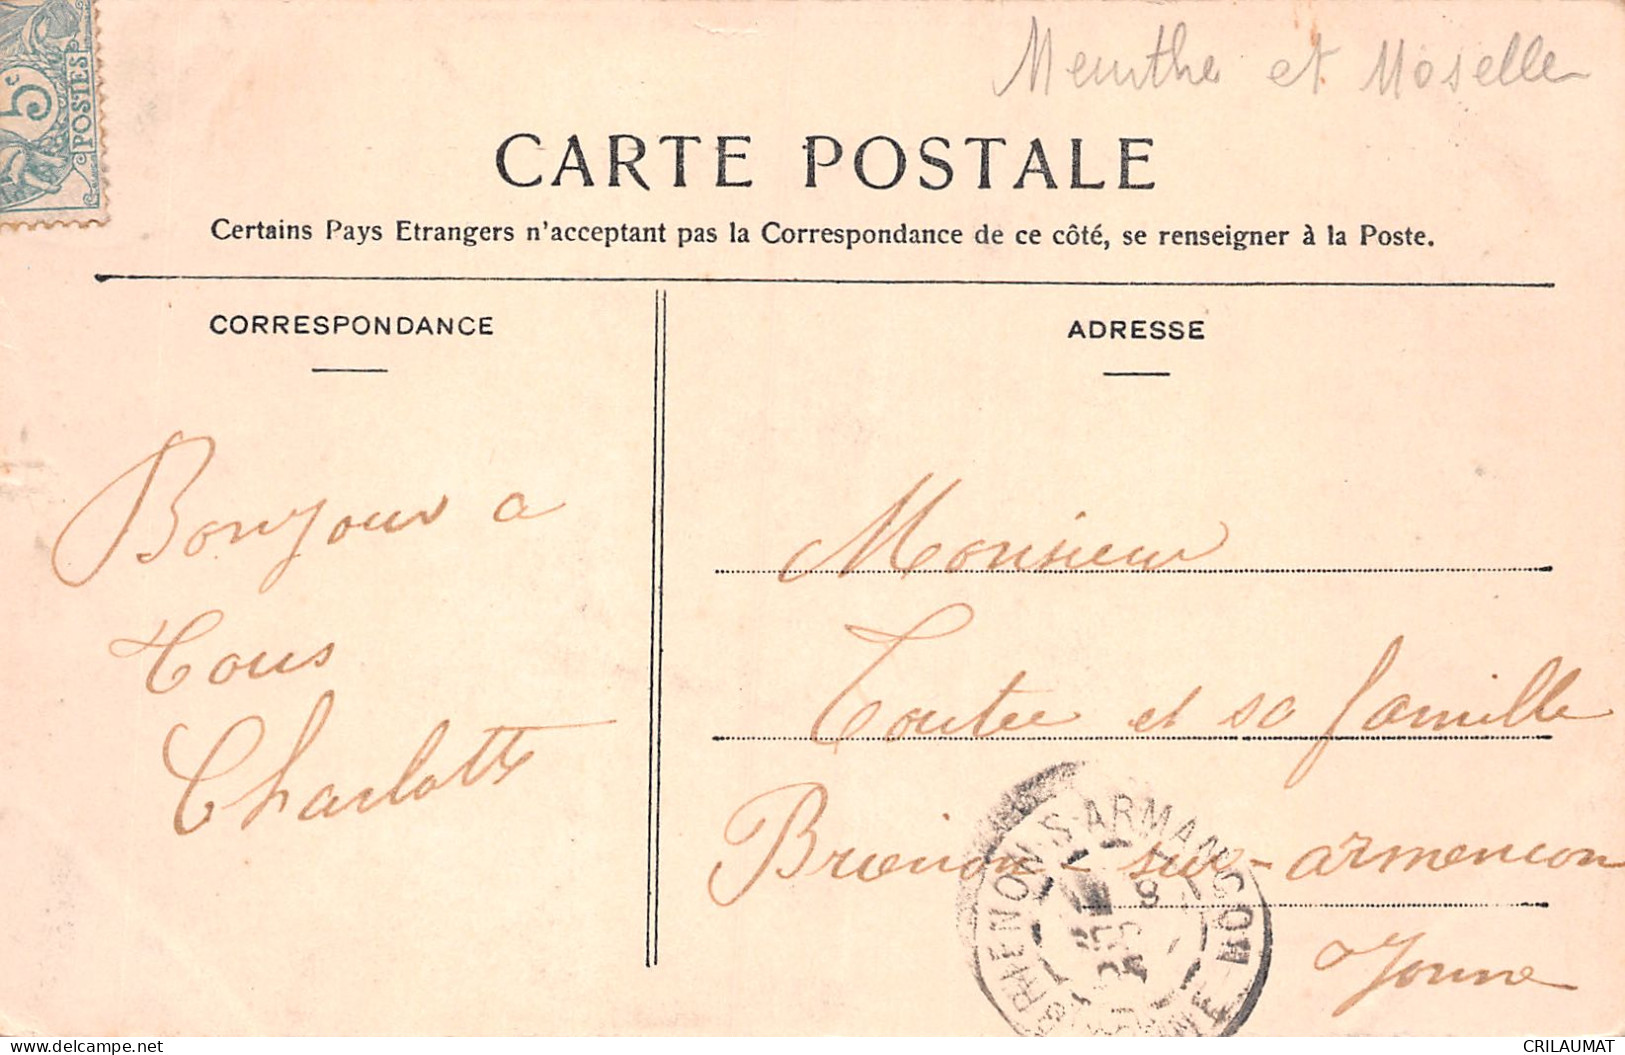 Meurthe et Moselle
5c
POSTES
CARTE POSTALE
Certains Pays Etrangers n'acceptant pas la Correspondance de ce côté, se renseigner à la Poste.
CORRESPONDANCE
Bonjour a
Tous
Charlotte
ADRESSE
Monsieur
Toutée et sa famille
Brienon-sur-armencon
Yonne
BRIENON-S-ARMANCON
YONNE
delcampe.net
CRILAUMAT